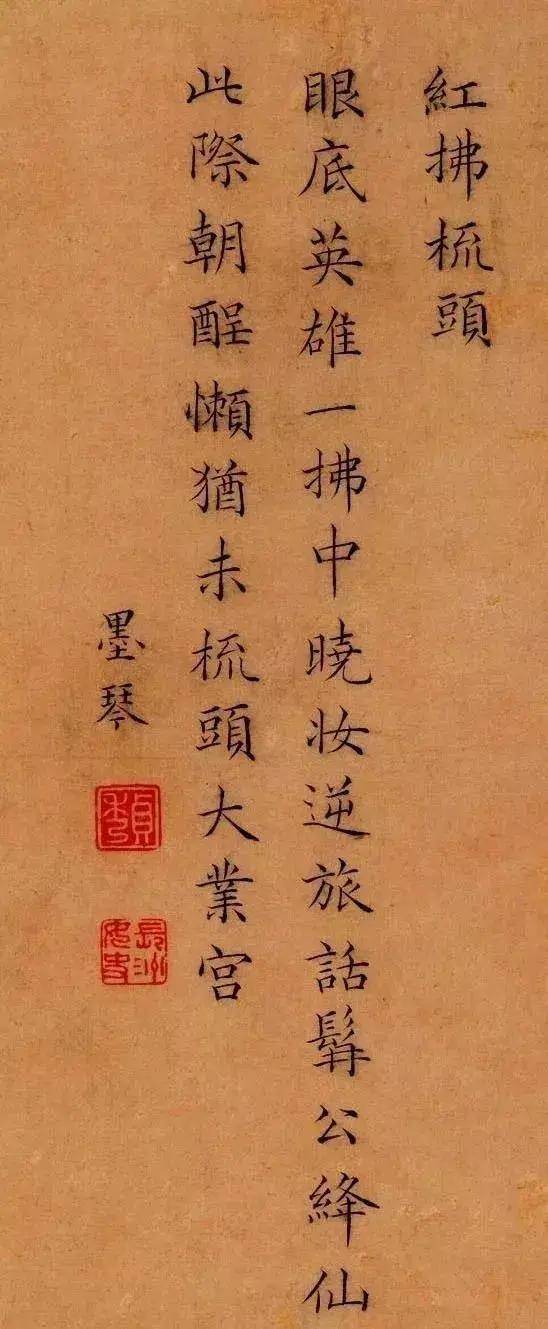 紅拂梳頭
眼底英雄一拂中曉妆逆旅話髯公絳仙
此際朝酲懶猶未梳頭大業宮
墨琴
長洲女史